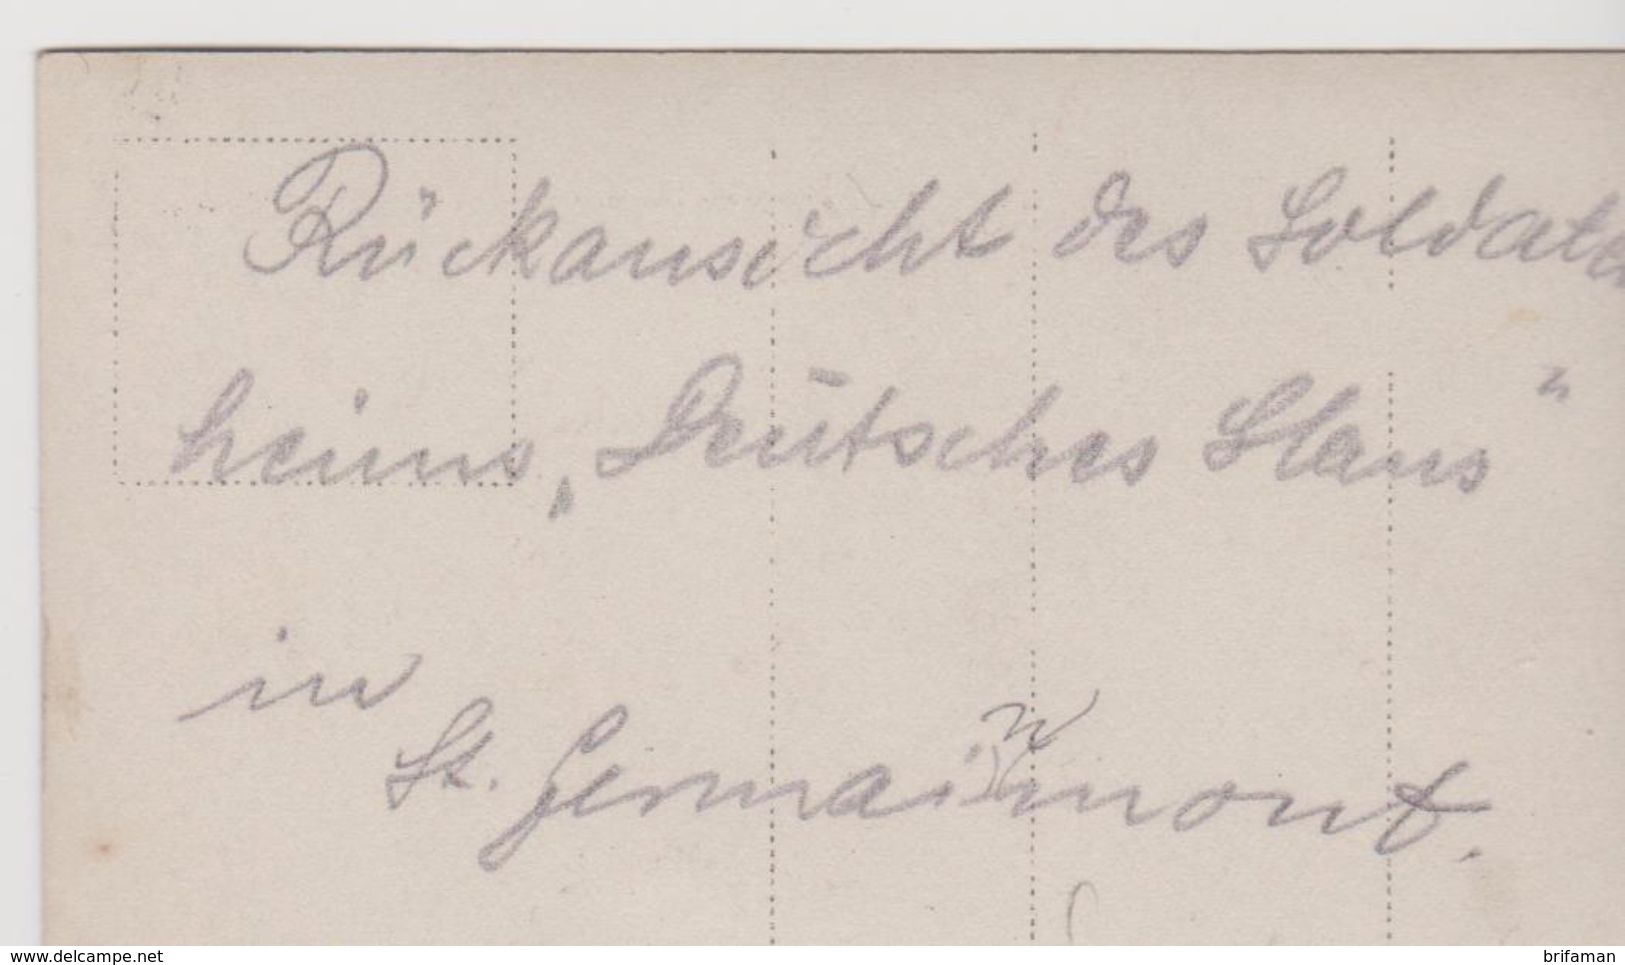 Rückansicht des Soldaten
heims „Deutsches Haus"
in
n
St. Germainmont.
www.delcampe.net
brifaman